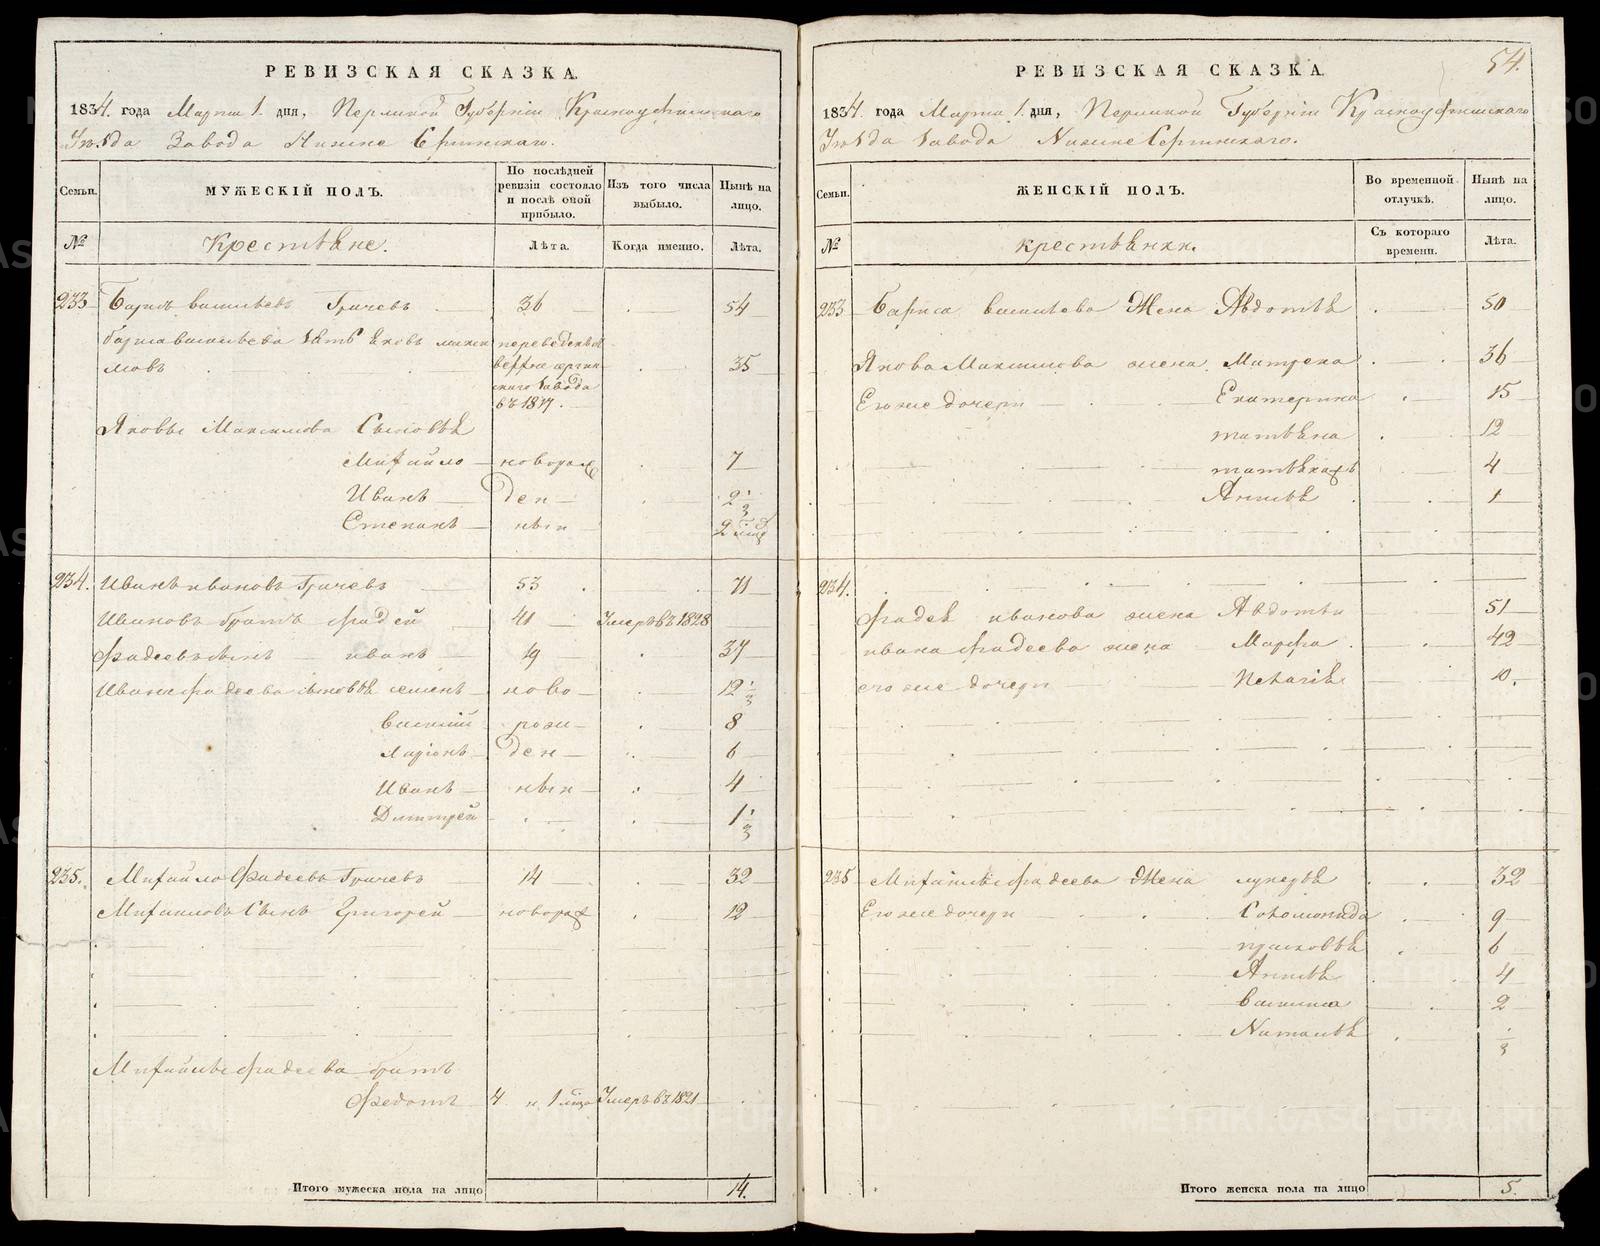 РЕВИЗСКАЯ СКАЗКА.
1834. года Марта 1. дня, Пермской Губернiи Красноуфимскаго
Уѣзда Завода Нижне Сергинскаго.
Семьи.
МУЖЕСКIЙ ПОЛЪ.
По послѣдней
ревизiи состояло
и послѣ оной
прибыло.
Изъ того числа
выбыло.
Нынѣ на
лицо.
№
Крестьяне.
Лѣта.
Когда именно.
Лѣта.
233 Васильевъ Грачевъ 36 54
зять Яковъ Макси переведенъ
мовъ 35
Завода
въ 1817.
Яковы Максимова Сыновья
Михайло новорож 7
Иванъ ден 2 1/3
Степанъ ныи 2
234. Иванъ Ивановъ Грачевъ 53 71
Ивановъ братъ Фадей 41 Умеръ въ 1828
Фадеевъ сынъ иванъ 19 37
Ивана Фадеева сыновья семенъ ново 12 1/3
василiй рож 8
Ларiонъ ден 6
Иванъ ныи 4
Дмитрей 1 1/3
235. Михайло Фадеевъ Грачевъ 14 32
Михаиловъ Сынъ Григорей новорож 12
Михайлы Фадеева братъ
Федотъ 4 Умеръ въ 1821
Итого мужеска пола на лицо 14.
54.
РЕВИЗСКАЯ СКАЗКА.
1834. года Марта 1. дня, Пермской Губернiи Красноуфимскаго
Уѣзда Завода Нижне Сергинскаго.
Семьи.
ЖЕНСКIЙ ПОЛЪ.
Во временной
отлучкѣ.
Нынѣ на
лицо.
№
крестьянки.
Съ котораго
времени.
Лѣта.
233 васильева Жена Авдотья 50
Якова Максимова жена Матрена 36
Его же дочери Екатерина 15
татьяна 12
4
Анисья 1
234.
Фадея иванова жена Авдотья 51
ивана Фадеева жена Марфа 42
его же дочери 10.
235 Михайлы Фадеева Жена лукерья 32
Его же дочери Соломонида 9
прасковья 6
Анисья 4
василиса 2
Наталья 1/3
Итого женска пола на лицо 5.
METRIKI.GASO-URAL.RU